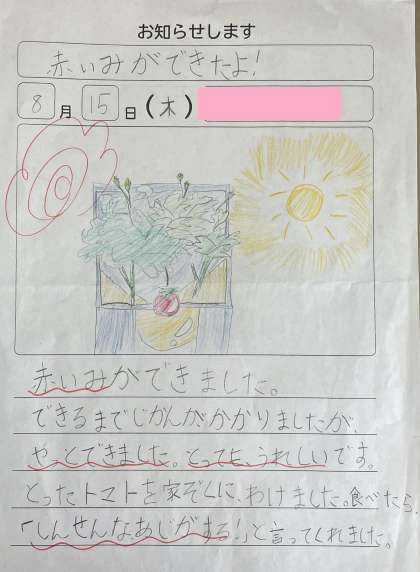 お知らせします
赤いみができたよ!
8月15日(木)
赤いみができました。
できるまでじかんがかかりましたが、
やっとできました。とってもうれしいです。
とったトマトを家ぞくに、わけました。食べたら、
「しんせんなあじがする!」と言ってくれました。